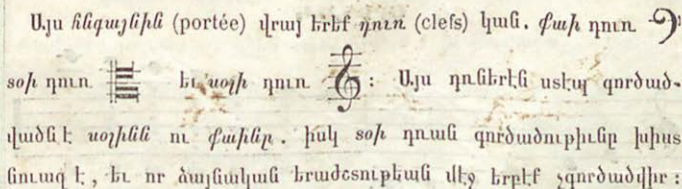 Այս հնգագիծին (portée) վրայ երեք դուռ (clefs) կան. ֆաի դուռ
տօի դուռ եւ սօլի դուռ : Այս դռներէն ստէպ գործած-
վածն է սօլինն ու ֆաինը. իսկ տօի դռան գործածութիւնը խիստ
նուազ է, եւ որ ձայնական երաժշտութեան մէջ երբէք չգործածվիր :